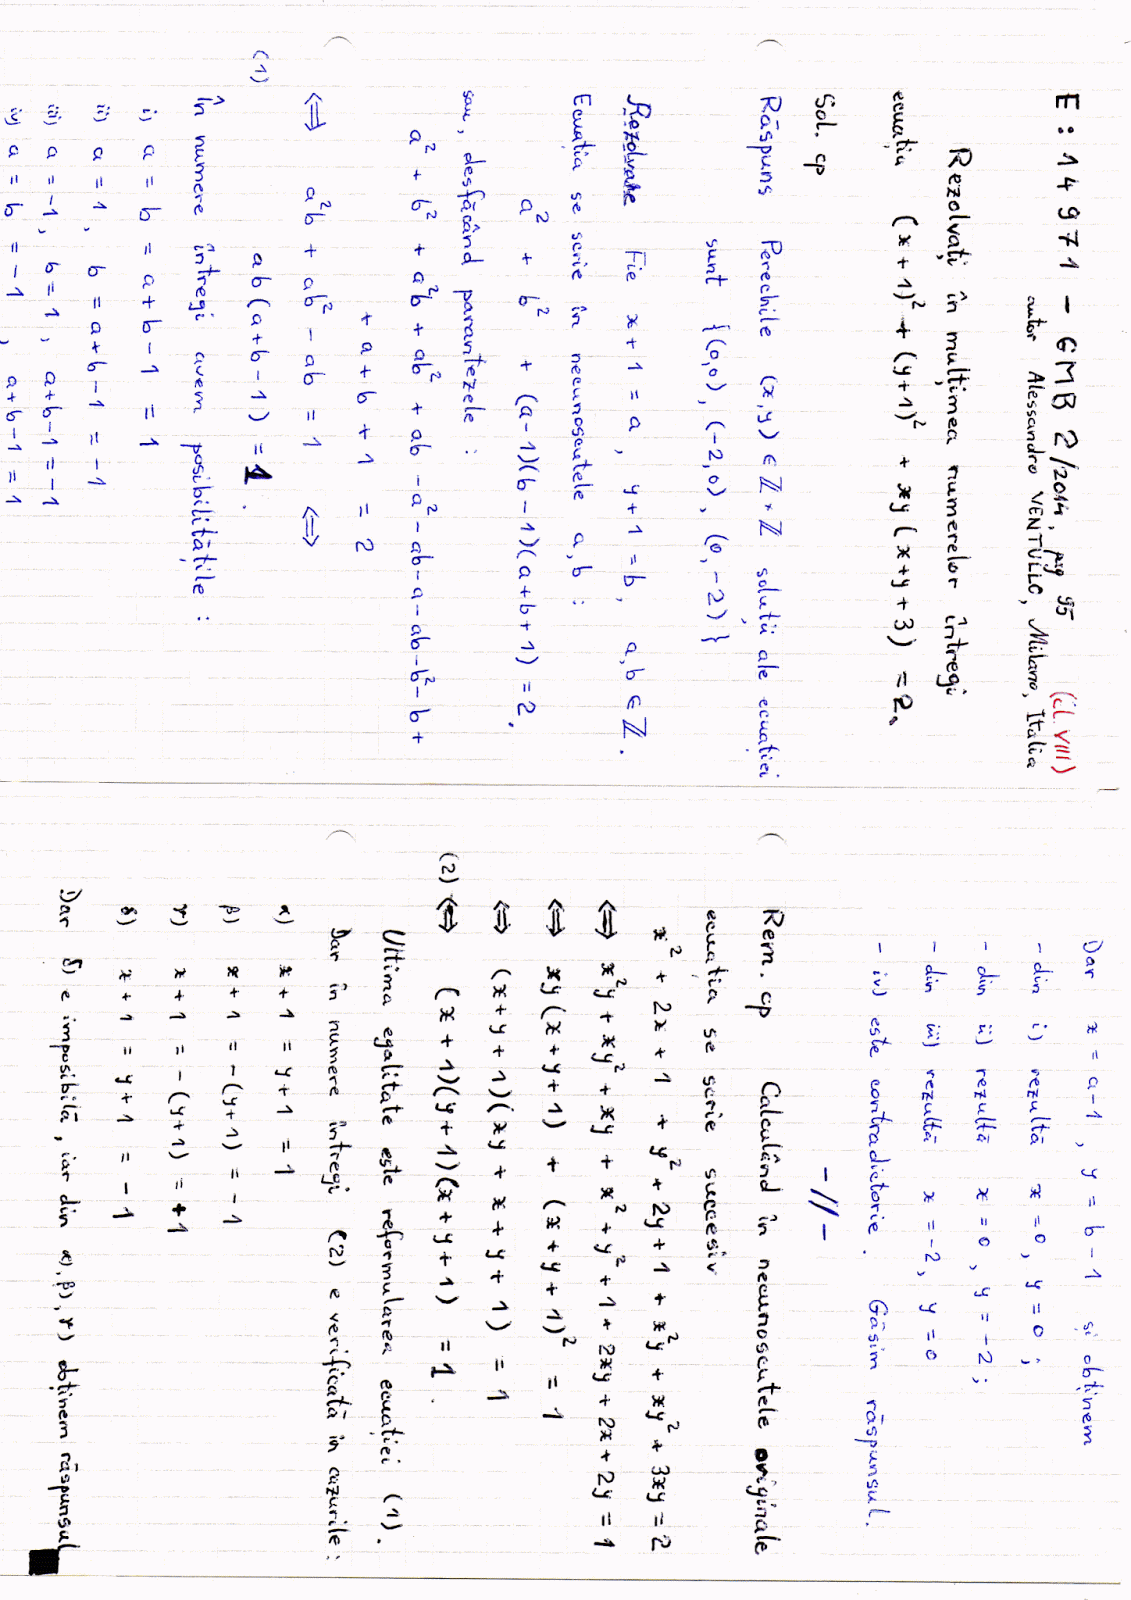 E : 14 971 - GMB 2/2014, pag 95 (cl. VIII)
autor Alessandro VENTULLO, Milano, Italia
Rezolvați în mulțimea numerelor întregi
ecuația (x+1)² + (y+1)² + xy(x+y+3) = 2.
Sol. cp
Răspuns Perechile (x,y) ∈ ℤ×ℤ soluții ale ecuației
sunt {(0,0), (-2,0), (0,-2)}
Rezolvare Fie x+1 = a, y+1 = b, a,b ∈ ℤ.
Ecuația se scrie în necunoscutele a, b :
a² + b² + (a-1)(b-1)(a+b+1) = 2,
sau, desfăcând parantezele :
a² + b² + a²b + ab² + ab - a² - ab - a - ab - b² - b +
+ a + b + 1 = 2
⇔ a²b + ab² - ab = 1 ⇔
(1) ab(a+b-1) = 1.
În numere întregi avem posibilitățile :
i) a = b = a+b-1 = 1
ii) a = 1, b = a+b-1 = -1
iii) a = -1, b = 1, a+b-1 = -1
iv) a = b = -1, a+b-1 = 1
Dar x = a-1, y = b-1 și obținem
- din i) rezultă x = 0, y = 0 ;
- din ii) rezultă x = 0, y = -2 ;
- din iii) rezultă x = -2, y = 0
- iv) este contradictorie. Găsim răspunsul.
-//-
Rem. cp Calculând în necunoscutele originale
ecuația se scrie succesiv
x² + 2x + 1 + y² + 2y + 1 + x²y + xy² + 3xy = 2
⇔ x²y + xy² + xy + x² + y² + 1 + 2xy + 2x + 2y = 1
⇔ xy(x+y+1) + (x+y+1)² = 1
⇔ (x+y+1)(xy + x + y + 1) = 1
(2) ⇔ (x+1)(y+1)(x+y+1) = 1.
Ultima egalitate este reformularea ecuației (1).
Dar în numere întregi (2) e verificată în cazurile :
α) x+1 = y+1 = 1
β) x+1 = -(y+1) = -1
γ) x+1 = -(y+1) = +1
δ) x+1 = y+1 = -1
Dar δ) e imposibilă, iar din α), β), γ) obținem răspunsul